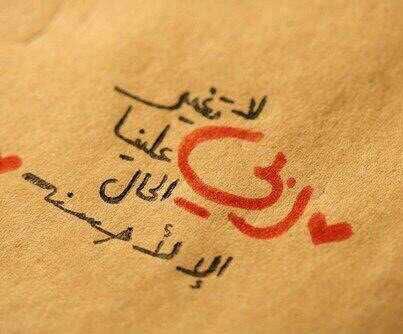 ربي
لا تغير
علينا
الحال
إلا لأحسنه